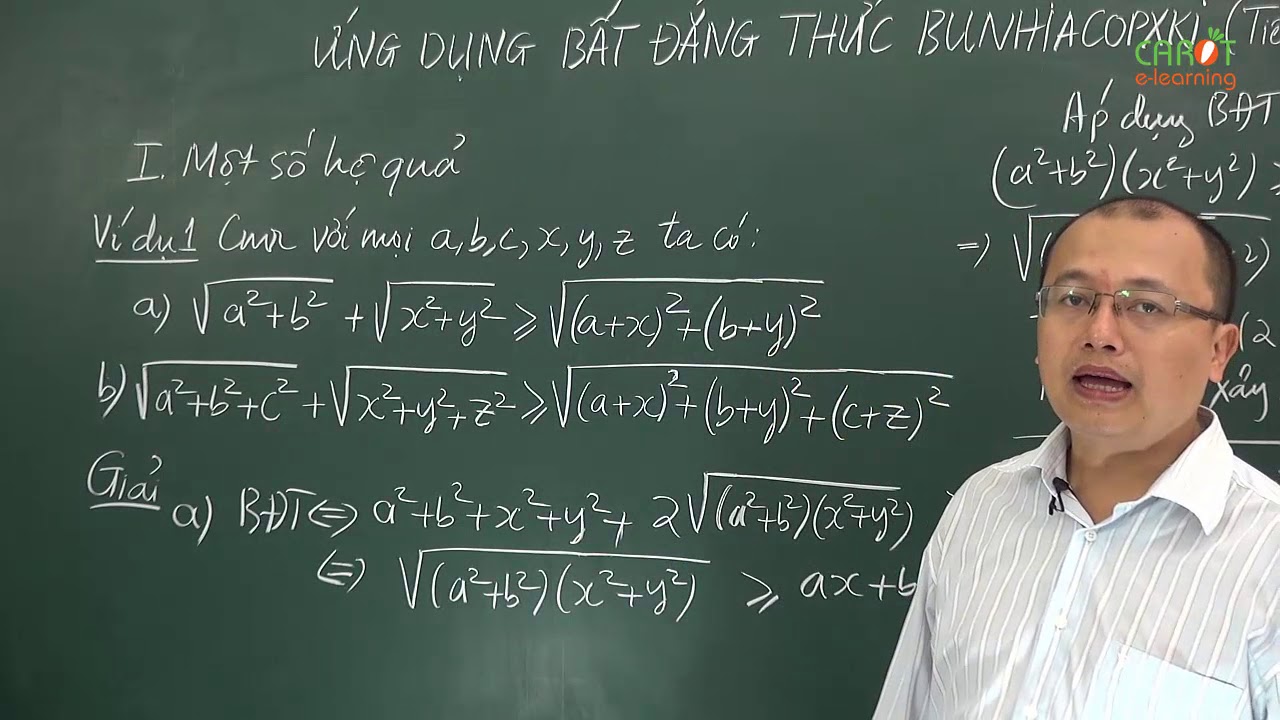 ỨNG DỤNG BẤT ĐẲNG THỨC BUNHIACOPXKI (Tiế
CAROT
e-learning
I. Một số hệ quả
Ví dụ1 Cmr với mọi a,b,c,x,y,z ta có:
a) √(a²+b²) + √(x²+y²) ≥ √((a+x)²+(b+y)²)
b) √(a²+b²+c²) + √(x²+y²+z²) ≥ √((a+x)²+(b+y)²+(c+z)²)
Giải
a) BĐT ⇔ a²+b²+x²+y²+ 2√((a²+b²)(x²+y²))
⇔ √((a²+b²)(x²+y²)) ≥ ax+b
Áp dụng BĐT
(a²+b²)(x²+y²) ≥
⇒ √(
(2
xảy